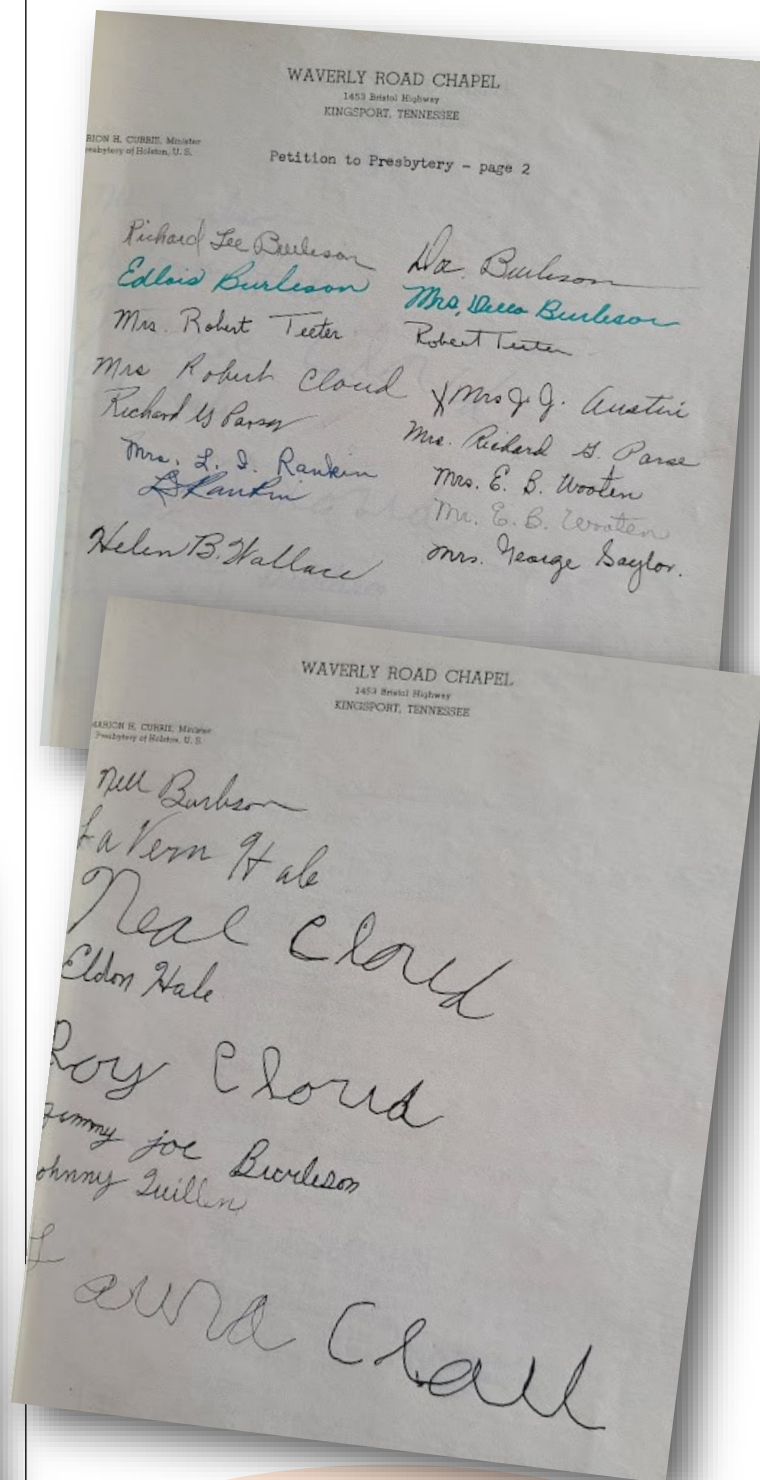 WAVERLY ROAD CHAPEL
1453 Bristol Highway
KINGSPORT, TENNESSEE
RION H. CURRIE, Minister
resbytery of Holston, U. S.
Petition to Presbytery - page 2
Richard Lee Burleson
Edlois Burleson
Mrs. Robert Teeter
Mrs Robert Cloud
Richard G Parse
Mrs. L. I. Rankin
Rankin
Helen B. Wallace
Burleson
Mrs, Burleson
Robert Teeter
Mrs J. J. Austin
Mrs. Richard G. Parse
Mrs. E. B. Wooten
Mr. E. B. Wooten
Mrs. George Saylor.
WAVERLY ROAD CHAPEL
1453 Bristol Highway
KINGSPORT, TENNESSEE
MARION H. CURRIE, Minister
Presbytery of Holston, U. S.
Nell Burleson
LaVern Hale
Neal Cloud
Eldon Hale
Roy Cloud
Jimmy joe Burleson
ohnny Quillen
Laura Clall